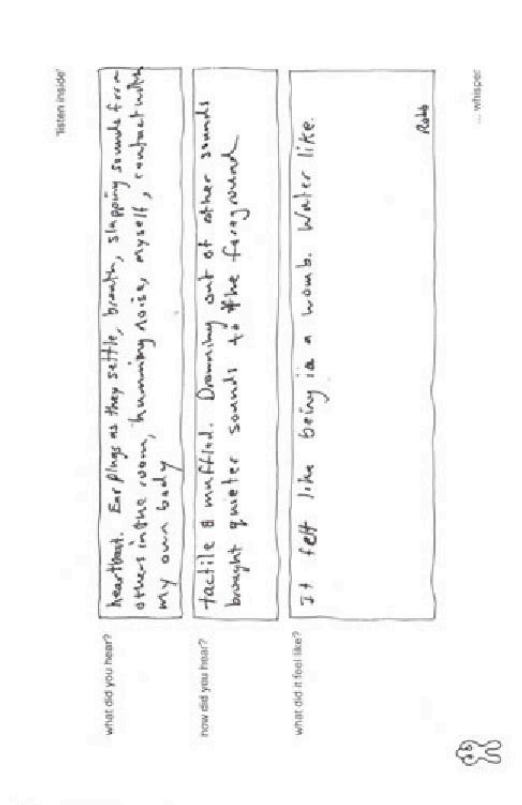 'listen inside'
what did you hear?
heartbeat. Ear plugs as they settle, breath, slapping sounds from
others in the room, humming noise, myself, contact with
my own body
how did you hear?
tactile & muffled. Drowning out of other sounds
brought quieter sounds to the foreground
what did it feel like?
It felt like being in a womb. Water like.
Robb
... whisper